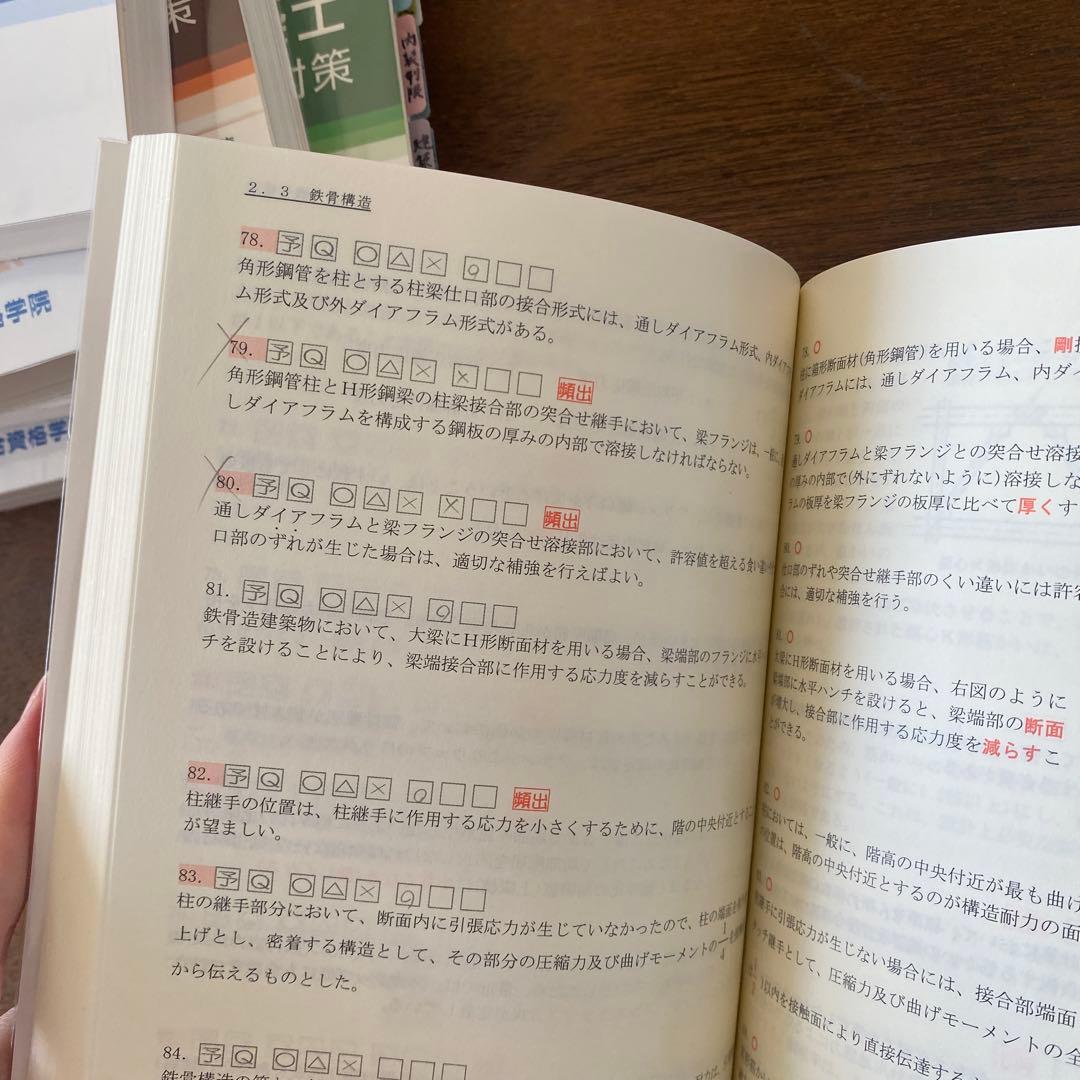 策
士
対策
内装制限
学院
資格学
2．3　鉄骨構造
78. 予 Q ○ △ × ○
角形鋼管を柱とする柱梁仕口部の接合形式には、通しダイアフラム形式、内ダイアフ
ム形式及び外ダイアフラム形式がある。
79. 予 Q ○ △ × × 頻出
角形鋼管柱とH形鋼梁の柱梁接合部の突合せ継手において、梁フランジは、一般に、
しダイアフラムを構成する鋼板の厚みの内部で溶接しなければならない。
80. 予 Q ○ △ × × 頻出
通しダイアフラムと梁フランジの突合せ溶接部において、許容値を超える食い違い
口部のずれが生じた場合は、適切な補強を行えばよい。
81. 予 Q ○ △ × ○
鉄骨造建築物において、大梁にH形断面材を用いる場合、梁端部のフランジに水
チを設けることにより、梁端接合部に作用する応力度を減らすことができる。
82. 予 Q ○ △ × ○ 頻出
柱継手の位置は、柱継手に作用する応力を小さくするために、階の中央付近とするこ
が望ましい。
83. 予 Q ○ △ × ○
柱の継手部分において、断面内に引張応力が生じていなかったので、柱の端面を
上げとし、密着する構造として、その部分の圧縮力及び曲げモーメントの1/4を
から伝えるものとした。
84. 予 Q ○ △ ×
鉄骨構造の
78. ○
柱に箱形断面材(角形鋼管)を用いる場合、剛
ダイアフラムには、通しダイアフラム、内ダイ
79. ○
通しダイアフラムと梁フランジとの突合せ溶接
の厚みの内部で(外にずれないように)溶接しな
ラムの板厚を梁フランジの板厚に比べて厚くす
80. ○
仕口部のずれや突合せ継手部のくい違いには許容
合には、適切な補強を行う。
81. ○
大梁にH形断面材を用いる場合、右図のように
梁端部に水平ハンチを設けると、梁端部の断面
が増大し、接合部に作用する応力度を減らすこ
とができる。
○
においては、一般に、階高の中央付近が最も曲げ
の位置は、階高の中央付近とするのが構造耐力の面
○
継手に引張応力が生じない場合には、接合部端面
タッチ継手として、圧縮力及び曲げモーメントの全
)以内を接触面により直接伝達する
○